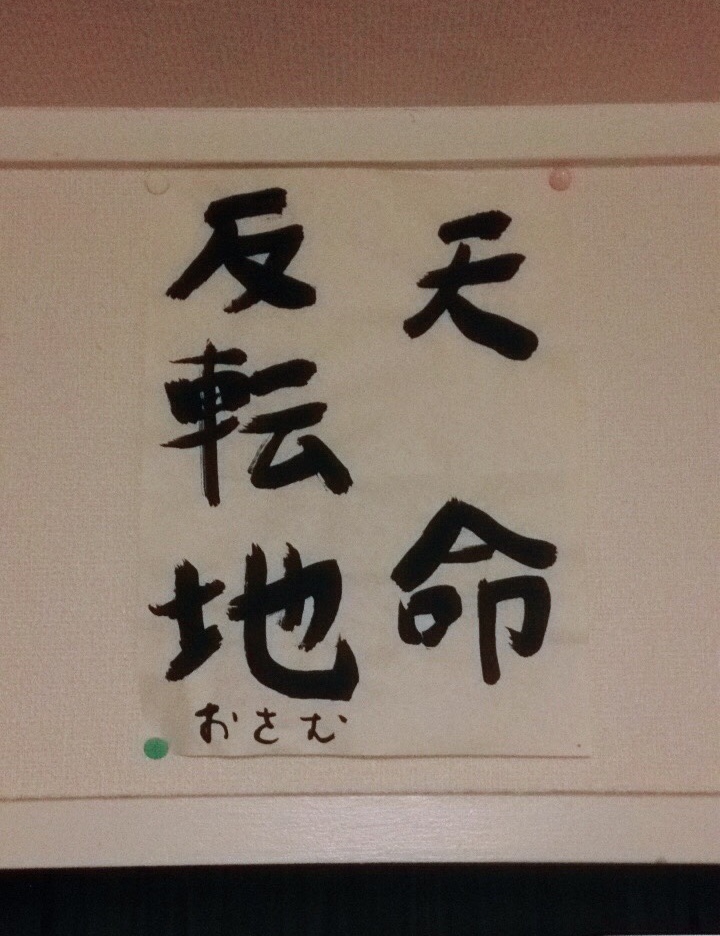 天命
反転地
おさむ